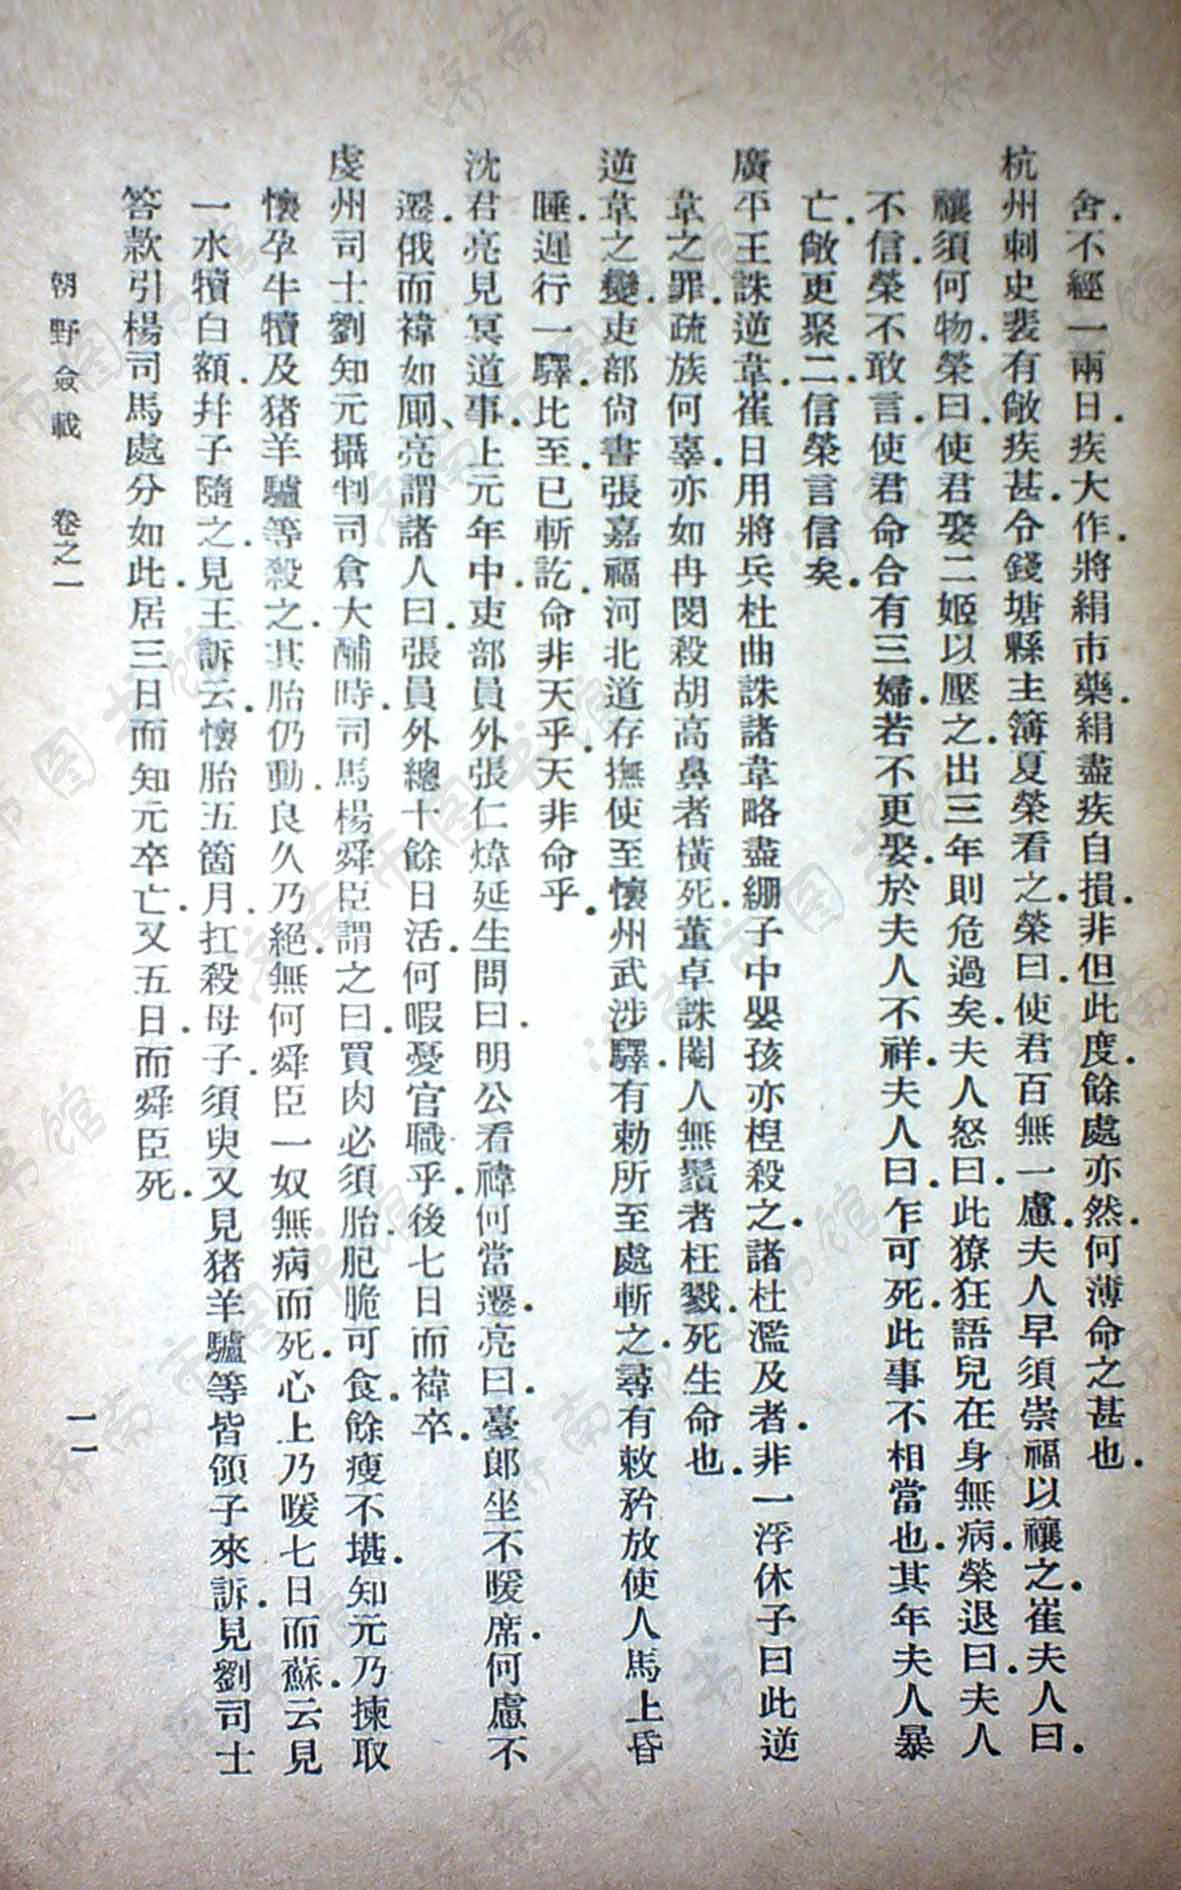 舍.不經一兩日.疾大作.將絹市藥.絹盡疾自損.非但此度.餘處亦然.何薄命之甚也.
杭州刺史裴有敞疾甚.令錢塘縣主簿夏榮看之.榮曰.使君百無一慮.夫人早須崇福以禳之.崔夫人曰.
禳須何物.榮曰.使君娶二姬以壓之.出三年則危過矣.夫人怒曰.此獠狂語.兒在身無病.榮退曰.夫人
不信.榮不敢言.使君命合有三婦.若不更娶.於夫人不祥.夫人曰.乍可死.此事不相當也.其年夫人暴
亡.敞更聚二.信榮言信矣.
廣平王誅逆韋.崔日用將兵杜曲誅諸韋略盡.繃子中嬰孩亦桯殺之.諸杜濫及者.非一.浮休子曰.此逆
韋之罪.疏族何辜.亦如冉閔殺胡高鼻者橫死.董卓誅閹人無鬚者枉戮.死生命也.
逆韋之變.吏部尙書張嘉福河北道存撫使至懷州武涉驛.有勅所至處斬之.尋有敕矜放.使人馬上昏
睡.遲行一驛.比至.已斬訖.命非天乎.天非命乎.
沈君亮見冥道事.上元年中.吏部員外張仁煒延生問曰.明公看褘何當遷.亮曰.臺郎坐不暖席.何慮不
遷.俄而褘如厠.亮謂諸人曰.張員外總十餘日活.何暇憂官職乎.後七日而褘卒.
虔州司士劉知元攝判司倉大酺時.司馬楊舜臣謂之曰.買肉必須胎肥脆可食.餘瘦不堪.知元乃揀取
懷孕牛犢及猪羊驢等殺之.其胎仍動.良久乃絕.無何舜臣一奴無病而死.心上乃暖.七日而蘇.云見
一水犢白額.幷子隨之.見王訴云.懷胎五箇月.扛殺母子.須臾又見猪羊驢等皆領子來訴.見劉司士
答款引楊司馬處分如此.居三日而知元卒亡.又五日.而舜臣死.
朝野僉載 卷之一
一一
济南市图书馆